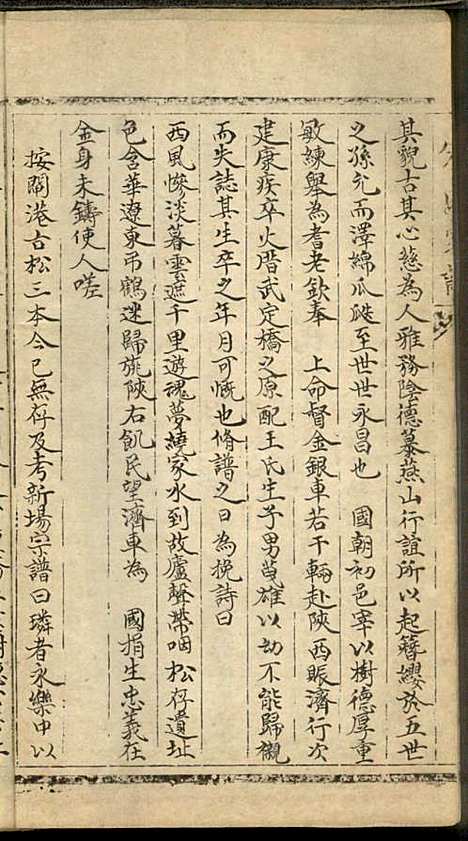 其貌古其心慈為人雅務陰德慕燕山行誼所以起簪纓於五世
之孫允而澤綿瓜瓞至世世永昌也　國朝初邑宰以樹德厚重
敏練舉為耆老欽奉　上命督金銀車若干輛赴陝西賑濟行次
建康疾卒火厝武定橋之原配王氏生子男茂雄以幼不能歸櫬
而失誌其生卒之年月可慨也脩譜之日為挽詩曰
西風慘淡暮雲遮千里遊魂夢繞家水到故廬聲帶咽松存遺址
色含華遼東弔鶴迷歸旐陝右飢民望濟車為　國捐生忠義在
金身未鑄使人嗟
按關港古松三本今已無存及考新場宗譜曰璘者永樂中以